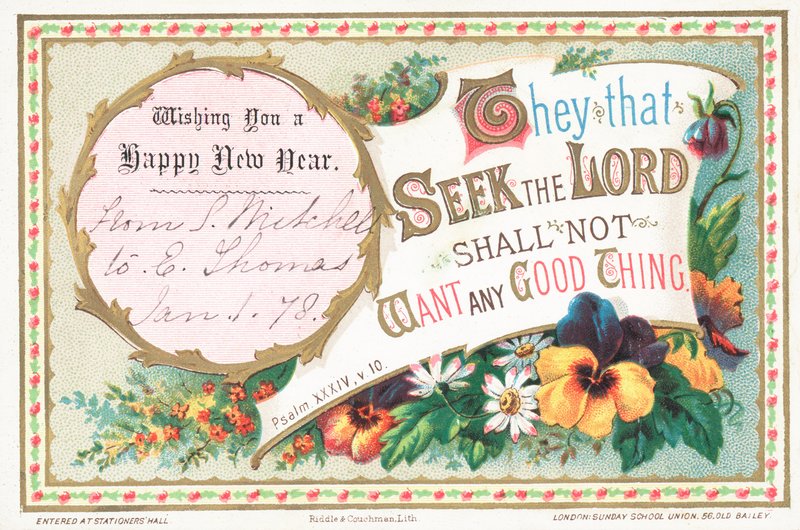 Wishing You a
Happy New Year.
From S. Mitchell
to. E. Thomas
Jan. 1. 78.
They that
SEEK THE LORD
SHALL NOT
WANT ANY GOOD THING.
Psalm XXXIV, v. 10.
ENTERED AT STATIONERS' HALL.
Riddle & Couchman, Lith.
LONDON: SUNDAY SCHOOL UNION. 56, OLD BAILEY.